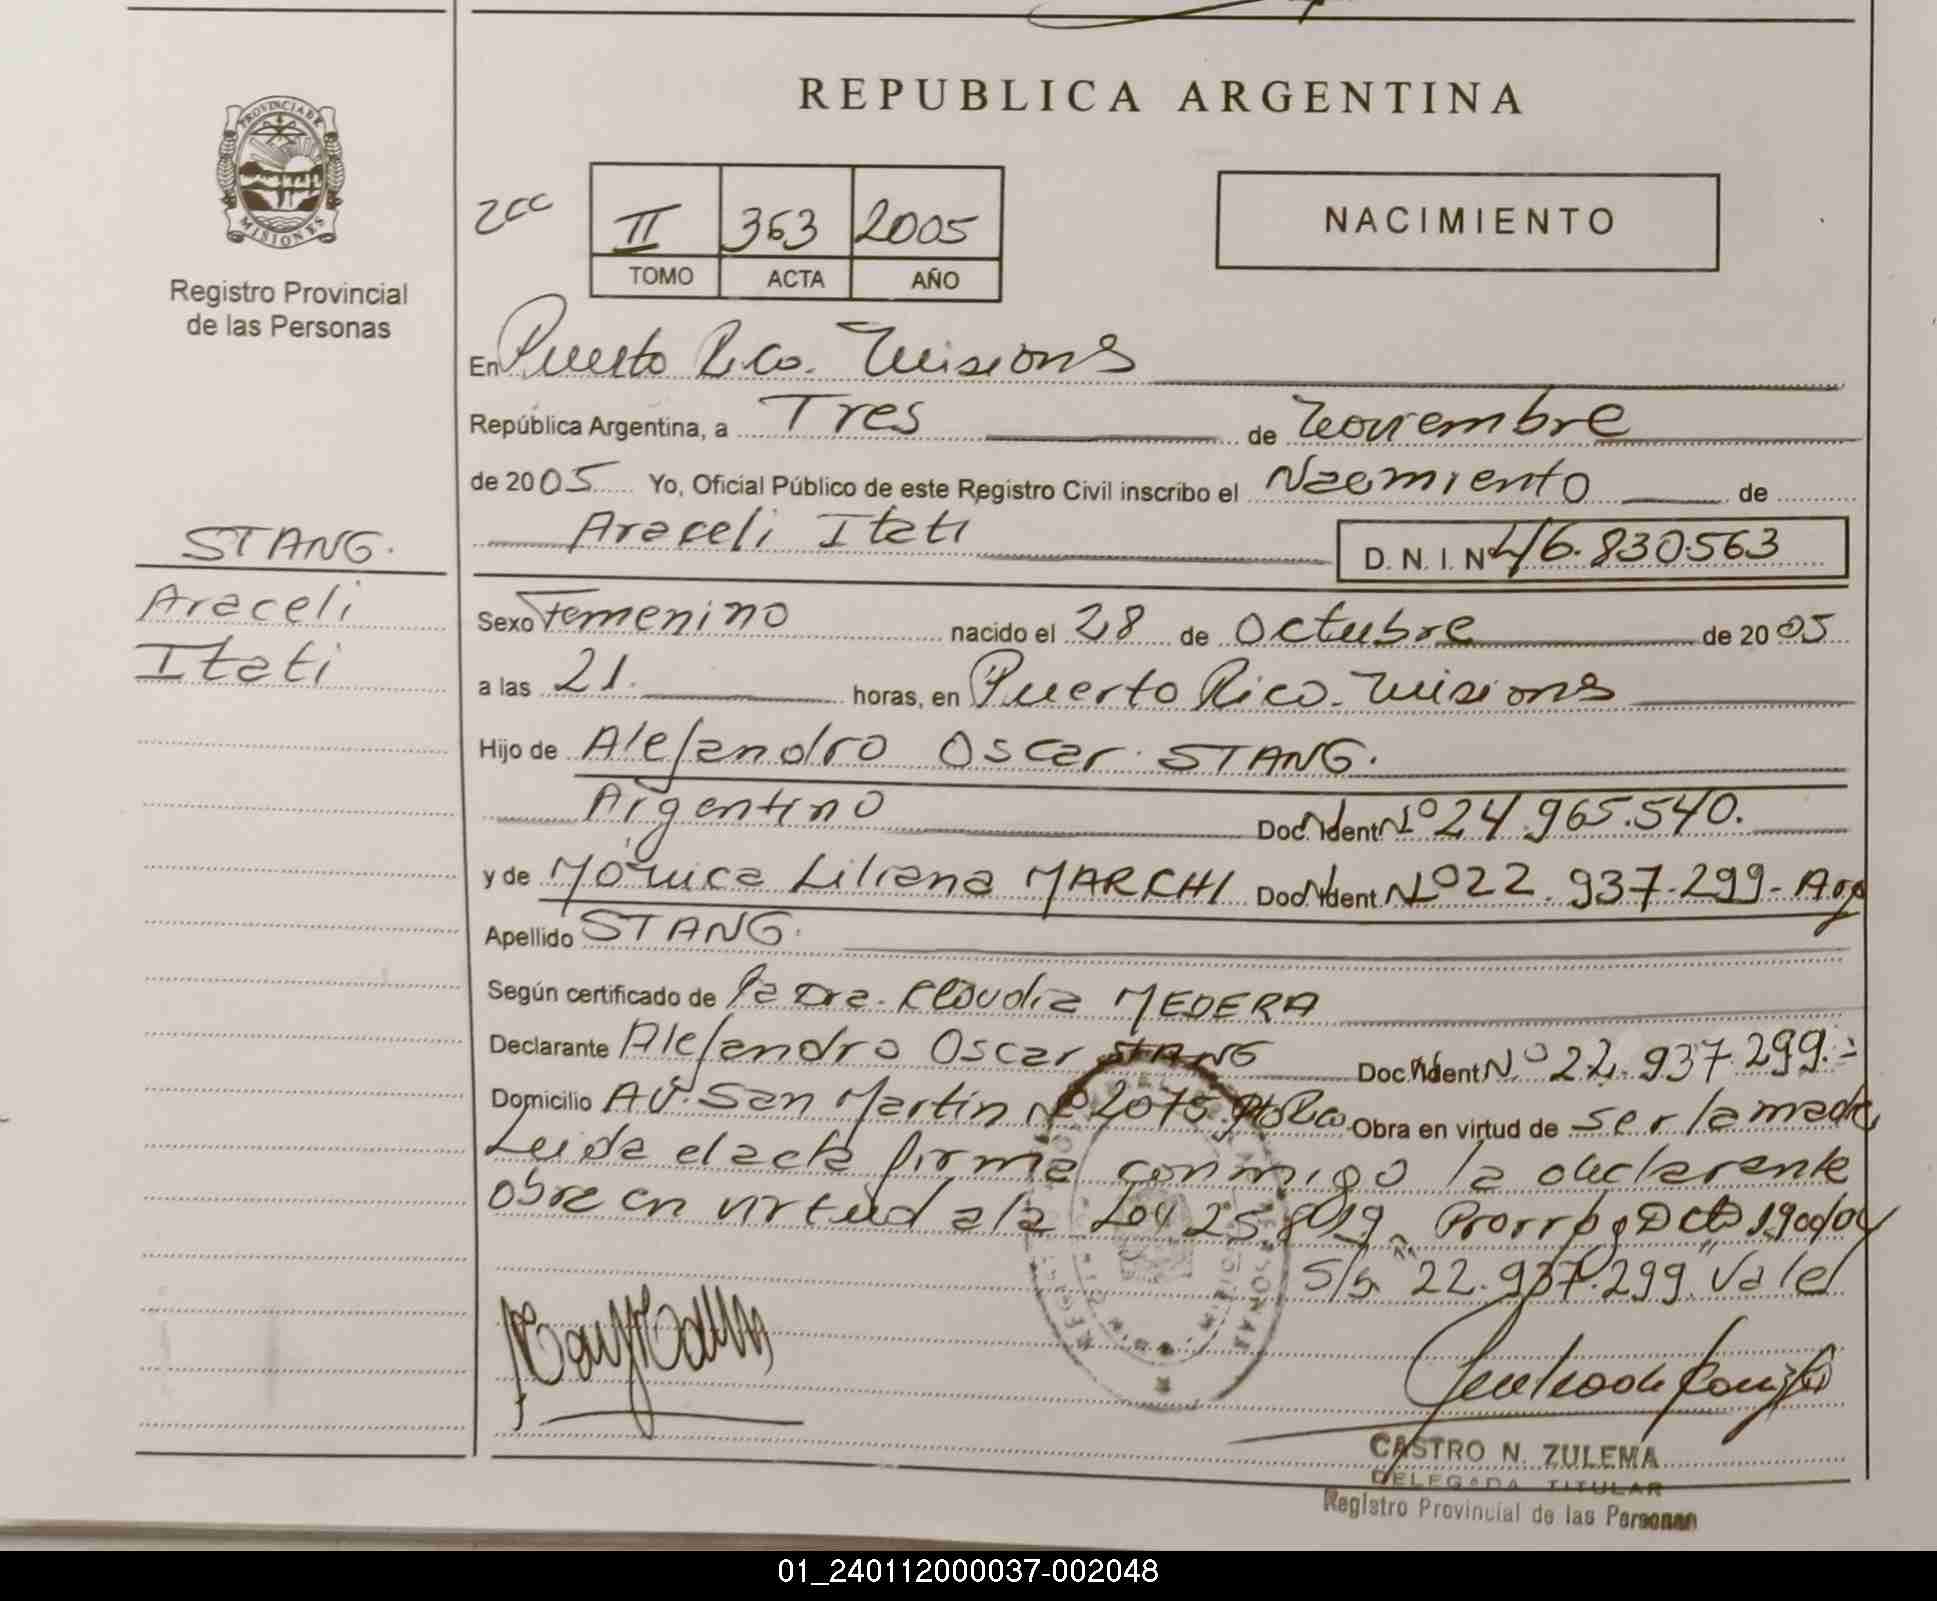 REPUBLICA ARGENTINA
PROVINCIA DE
MISIONES
Registro Provincial
de las Personas
II 363 2005
TOMO ACTA AÑO
NACIMIENTO
En Puerto Rico. Misiones
República Argentina, a Tres de Noviembre
de 2005 Yo, Oficial Público de este Registro Civil inscribo el Nacimiento de
Araceli Itati D.N.I. Nº 46.830.563
STANG.
Araceli
Itati
Sexo Femenino nacido el 28 de Octubre de 2005
a las 21. horas, en Puerto Rico. Misiones
Hijo de Alejandro Oscar STANG.
Argentino Doc. Ident. Nº 24.965.540.
y de Mónica Liliana MARCHI Doc. Ident. Nº 22.937.299- Arg
Apellido STANG.
Según certificado de la Dra. Claudia MEDERA
Declarante Alejandro Oscar STANG Doc. Ident. Nº 22.937.299.-
Domicilio AV. San Martin Nº 2075 Pto Rico Obra en virtud de ser la madre
Leida el acta firma conmigo la declarante
obra en virtud a la Ley 25.819 Prorrog Dcto 190/04
S/r. "22.937.299" Vale/
CASTRO N. ZULEMA
DELEGADA TITULAR
Registro Provincial de las Personas
01_240112000037-002048